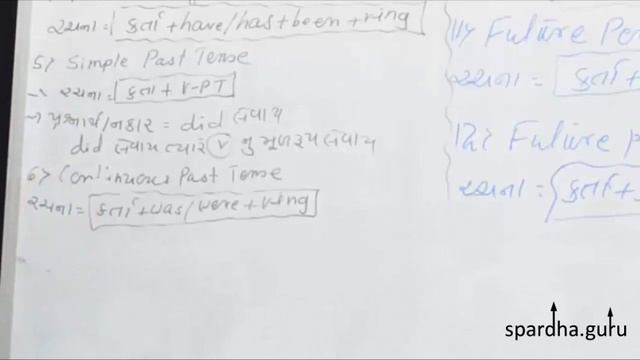 રચના = કર્તા + have/has + been + ving
5> Simple Past Tense
→ રચના = કર્તા + V-PT
→ પ્રશ્નાર્થ/નકાર = did લખાય
did લખાય ત્યારે V નુ મૂળરૂપ લખાય
6> Continuous Past Tense
રચના = કર્તા + was/were + ving
11> Future Per
રચના = કર્તા +
12> Future P
રચના = કર્તા +
spardha.guru